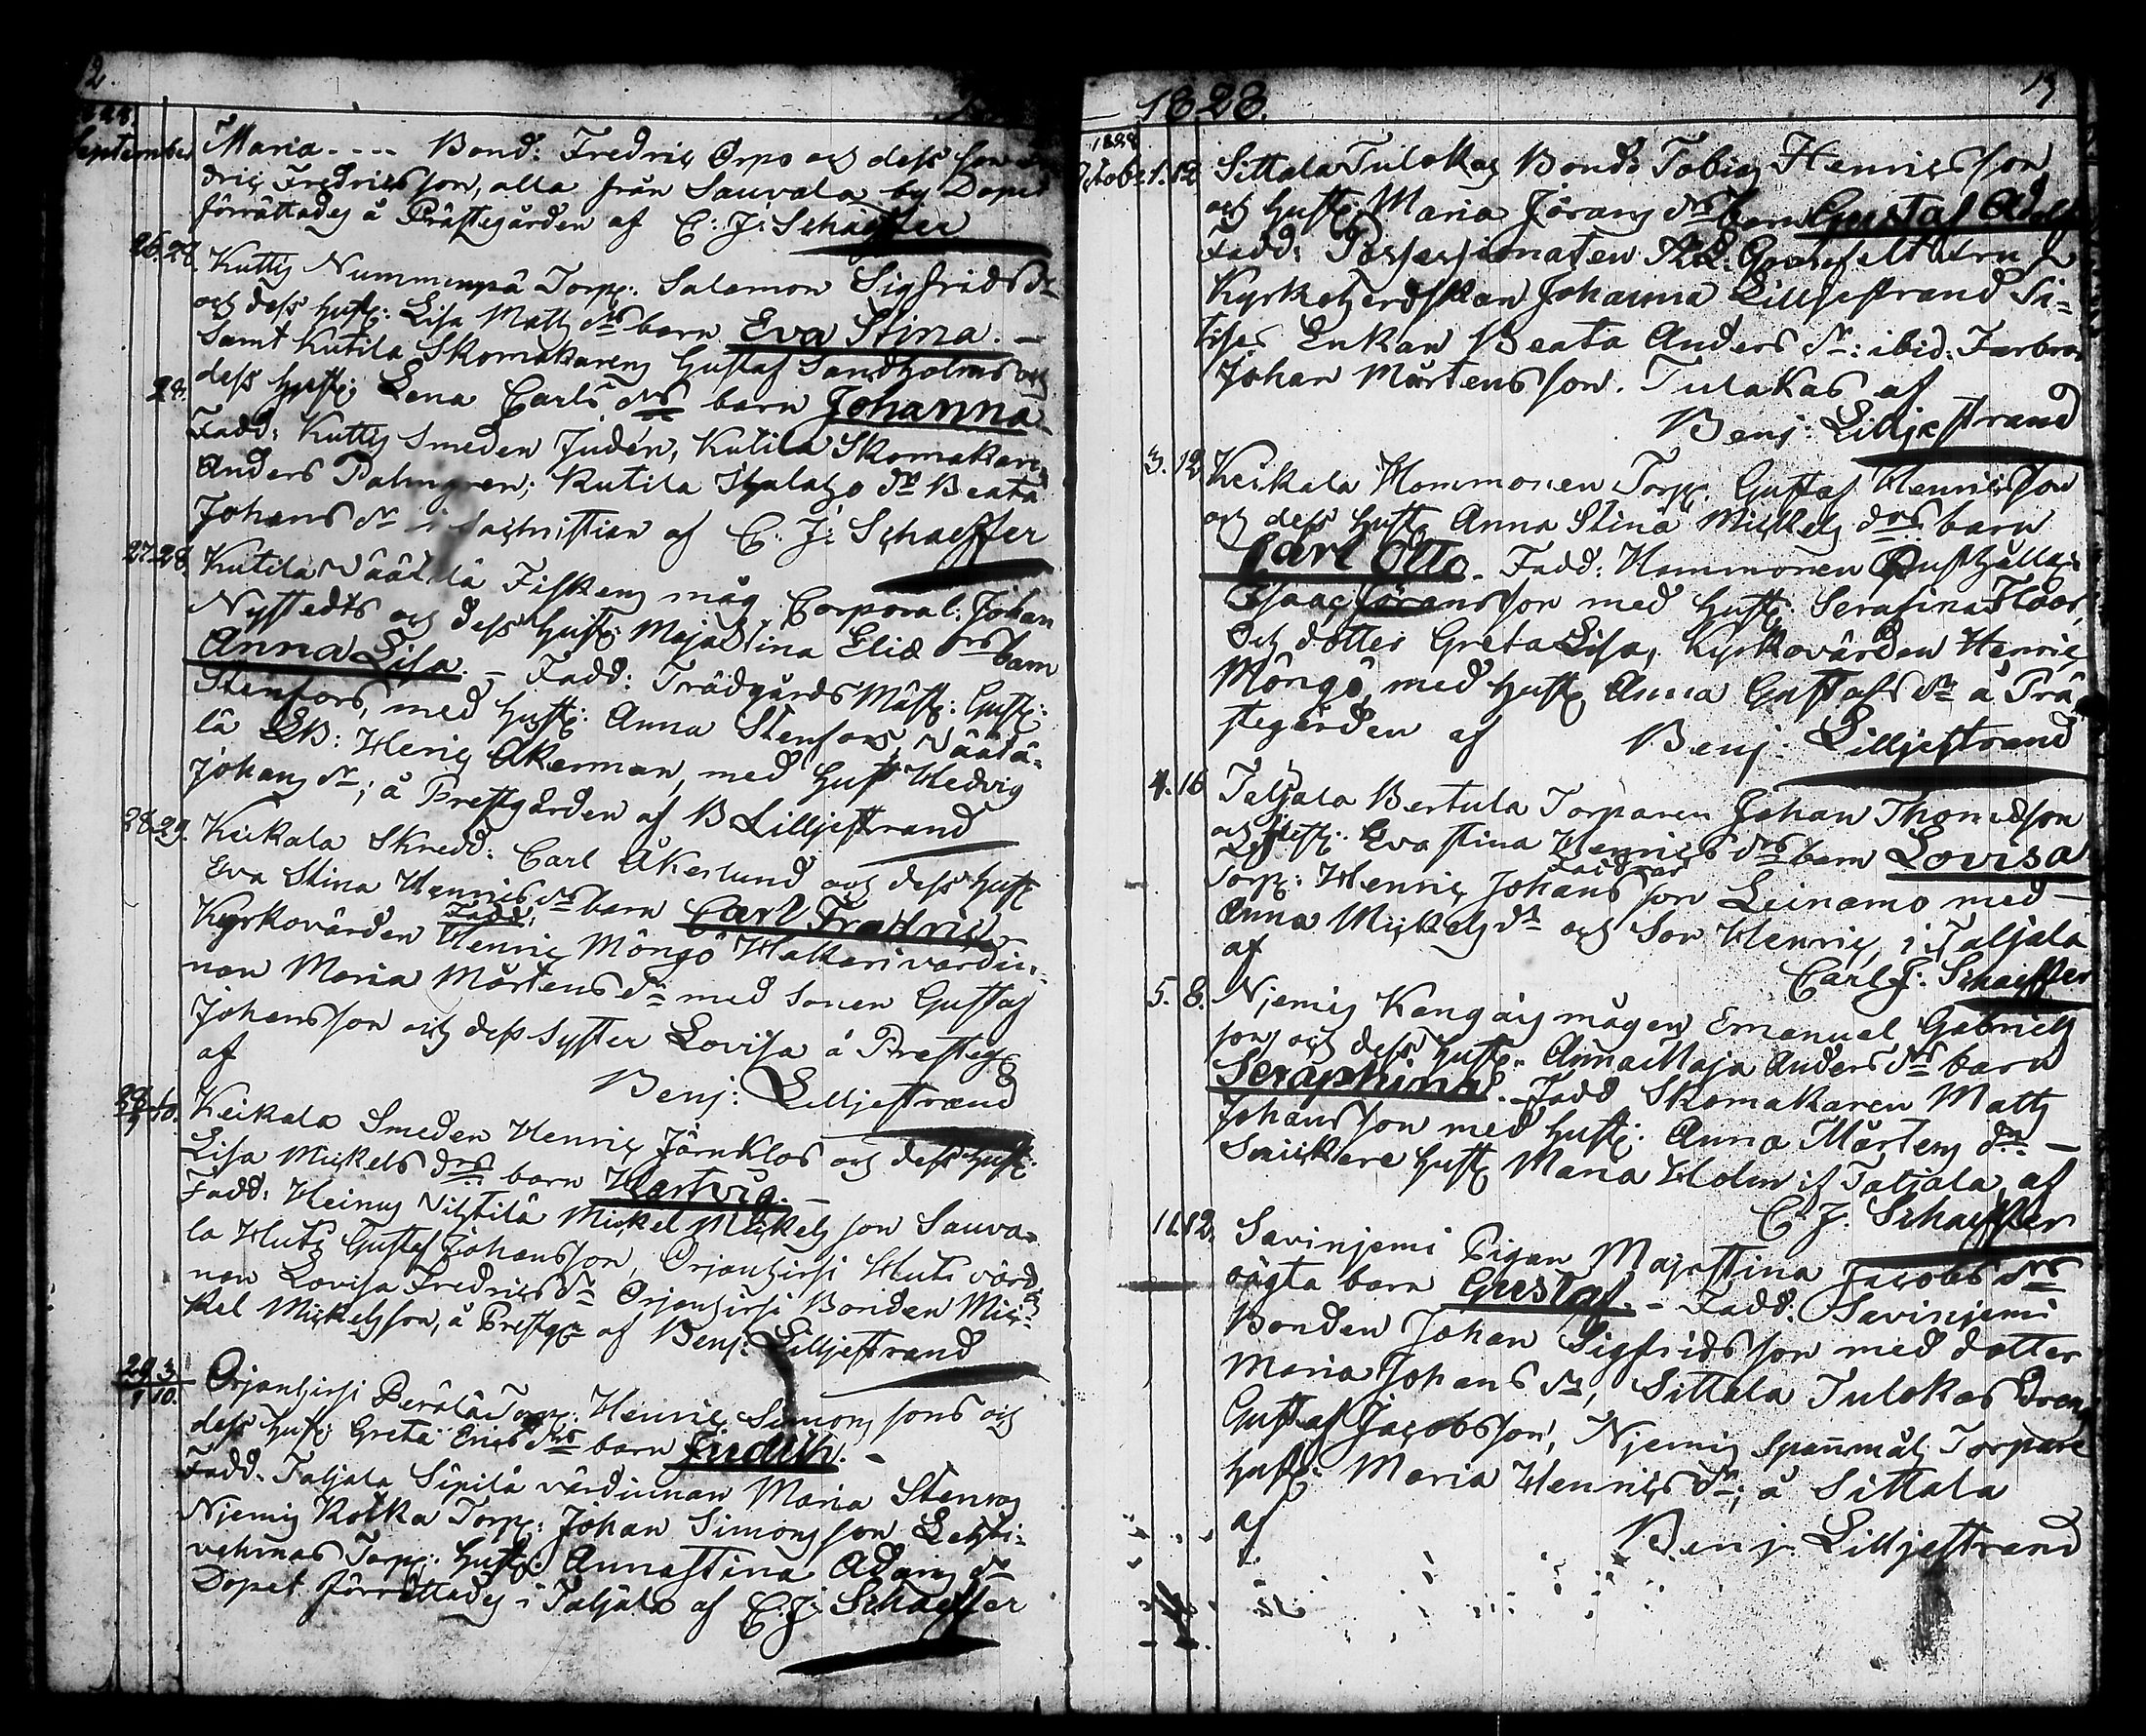 12.
1828.
September
Maria - - - - Bond: Fredric Orpo och dess son
dric Fredricsson, alla från Sauvala by Dopet
förrättades å Prästegården af C: J: Schaeffer
26. 28. Kuttis Nummenpä Torp: Salomon Sigfrids
och dess hust: Lisa Matts drs barn Eva Stina. -
Samt Kutila Skomakarens Gustaf Sandholms och
28. dess hust: Lena Carls drs barn Johanna -
Fadd: Kuttis Smeden Judén, Kutila Skomakaren
Anders Palmgren; Kutila dr Beata
Johans dr i Sachristian af C. J: Schaeffer
27. 28. Kutila Fiskens måg Corporal: Johan
Nystedts och dess hust: Maja Stina Elid drs barn
Anna Lisa. - Fadd: Trädgårds Mäst: Gust:
Stenfors, med hust: Anna Stenfors, Väätä-
lä Henric Åkerman, med hust Hedvig
Johans dr; å Prestgården af B Lilljestrand
28. 29. Keikala Skredd: Carl Åkerlund och dess hust
Eva Stina Henrics drs barn Carl Fredric
Fadd:
Kyrkovärden Henric Möngö Hakkari värdin-
nan Maria Mårtens dr med sonen Gustaf
Johansson och dess syster Lovisa å Presteg
af
Benj: Lilljestrand
10. Keikala Smeden Henric Järnklos och dess hust:
Lisa Mickels drs barn Hartvig. -
Fadd: Heinus Mickel Mickels son Sauva-
la Huti Gustaf Johansson, Orjanhirsi Huti värd-
nan Lovisa Fredrics dr Orjanhirsi Bonden Mic-
kel Mickelsson, å Prestg af Benj: Lilljestrand
29 3
1 10.
Orjanhirsi Perälä Torp: Henric Simons sons och
dess hust: Greta Erics drs barn Judith. -
Fadd. Taljala Sipilä värdinnan Maria Stenroos
Njemis Kolka Torp: Johan Simons son Lehti-
vehmas Torp: hust: Annastina Adams dr
Dopet förrättades i Taljala af C. J. Schaeffer
1828.
13
1828
October 1. 12 Sittala Tulokas Bonds Tobias Henricsson
och hust: Maria Jörans drs barn Gustaf Adolf
Fadd: Possessionaten Granfelt
Kyrkoherdskan Johanna Lilljestrand Si-
Enkan Beata Anders dr: ibid: Farbror
Johan Mårtensson. Tulokas af
Benj: Lilljestrand
3. 12 Keikala Hommonen Torp: Gustaf Henricsson
och dess hust Anna Stina Mickels drs barn
Carl Otto. - Fadd: Hommonen Rusthålla:
Isaac Jöransson med hust: Serafina Floor,
och dotter Greta Lisa, Kyrkovärden Henric
Möngö, med hust Anna Gustafs dr å Prä-
stegården af Benj: Lilljestrand
4. 16 Taljala Bertula Torparen Johan Thomasson
och hust: Eva Stina Henrics drs barn Lovisa
Faddrar
Torp: Henric Johans son Leinamo med -
Anna Mickels dr och Son Henric, i Taljala
af
Carl J: Schaeffer
5. 8. Njemis Kangais mågen Emanuel Gabriels
son och dess hust: Anna Maja Anders drs barn
Seraphina. - Fadd Skomakaren Matts
Johansson med hust: Anna Mårtens dr -
Snickare hust Maria Holm i Taljala, af
C. J. Schaeffer
11. 12. Savinjemi Pigan Majastina Jacobs drs
oägta barn Gustaf. - Fadd: Savinjemi
Bonden Johan Sigfridsson med dotter
Maria Johans dr, Sittala Tulokas Dreng
Gustaf Jacobsson, Njemis spanmåls Torpare
hust: Maria Henrics dr; å Sittala
af
Benj: Lilljestrand